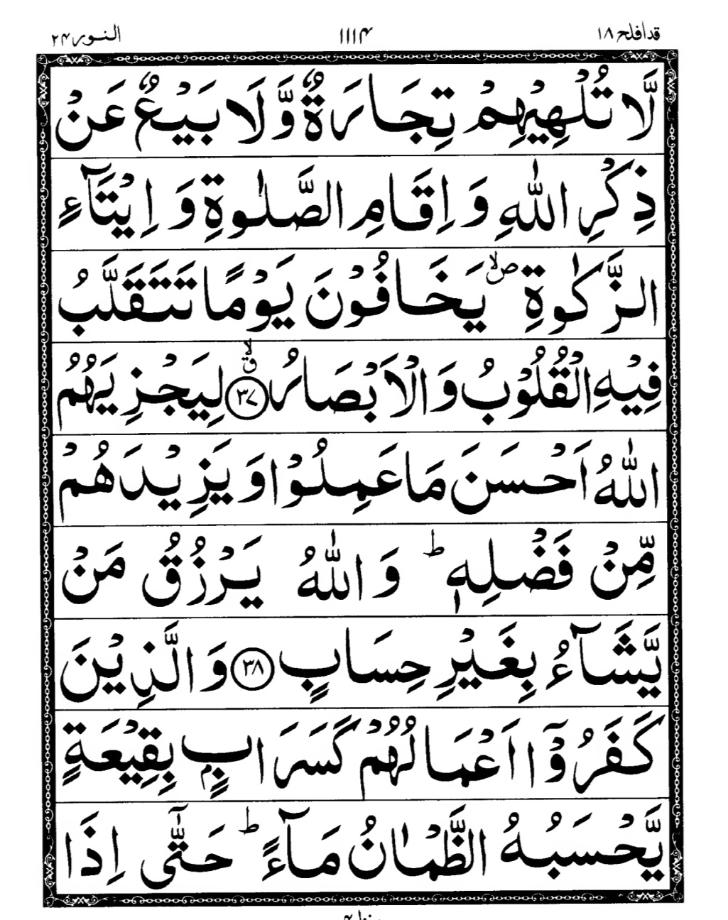 قد افلح ۱۸ ۱۱۱۴ النور ۲۴
لَّا تُلۡهِيۡهِمۡ تِجَارَةٌ وَّلَا بَيۡعٌ عَنۡ
ذِكۡرِ اللّٰهِ وَ اِقَامِ الصَّلٰوةِ وَ اِيۡتَآءِ
الزَّكٰوةِ ۙ صلا يَخَافُوۡنَ يَوۡمًا تَتَقَلَّبُ
فِيۡهِ الۡقُلُوۡبُ وَ الۡاَبۡصَارُ ﴿۳۷﴾ ق لا لِيَجۡزِيَهُمُ
اللّٰهُ اَحۡسَنَ مَا عَمِلُوۡا وَ يَزِيۡدَهُمۡ
مِّنۡ فَضۡلِهٖ ؕ وَ اللّٰهُ يَرۡزُقُ مَنۡ
يَّشَآءُ بِغَيۡرِ حِسَابٍ ﴿۳۸﴾ وَ الَّذِيۡنَ
كَفَرُوۡۤا اَعۡمَالُهُمۡ كَسَرَابٍۭ بِقِيۡعَةٍ
يَّحۡسَبُهُ الظَّمۡاٰنُ مَآءً ؕ حَتّٰۤى اِذَا